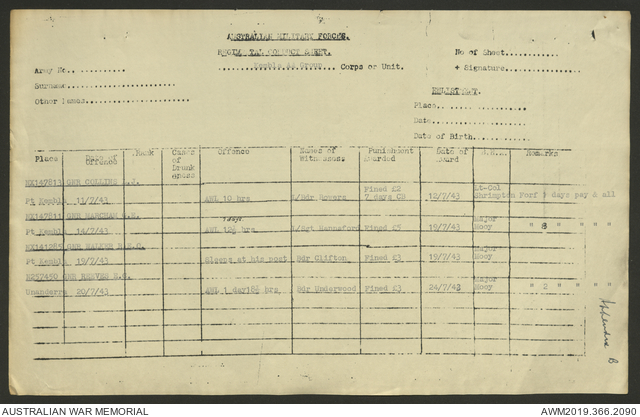 AUSTRALIAN MILITARY FORCES.
REGIMENTAL CONDUCT SHEET.
No of Sheet............
Kembla AA Group Corps or Unit.
Army No............
+ Signature............
Surname............
Other Names............
ENLISTMENT.
Place............
Date............
Date of Birth............
Place Date of Offence Rank Cases of Drunkenness Offence Names of Witnesses Punishment Awarded Date of Award Remarks
NX147813 GNR COLLINS J.
Pt Kembla 11/7/43 AWL 10 hrs L/Bdr Fined £2 7 days CB 12/7/43 Lt-Col Shrimpton Forf days pay & all
NX147811 GNR
1 day
Pt Kembla 14/7/43 AWL 12½ hrs L/Sgt Hannaford Fined £5 19/7/43 Major Mooy " 8 " " "
NX141285 GNR
Pt Kembla 19/7/43 Sleeps at his post Bdr Clifton Fined £3 19/7/43 Major Mooy
N257450 GNR REEVES
Unanderra 20/7/43 AWL 1 day 18½ hrs Bdr Underwood Fined £3 24/7/43 Major Mooy " 2 " " "
Appendix B
AUSTRALIAN WAR MEMORIAL
AWM2019.366.2090